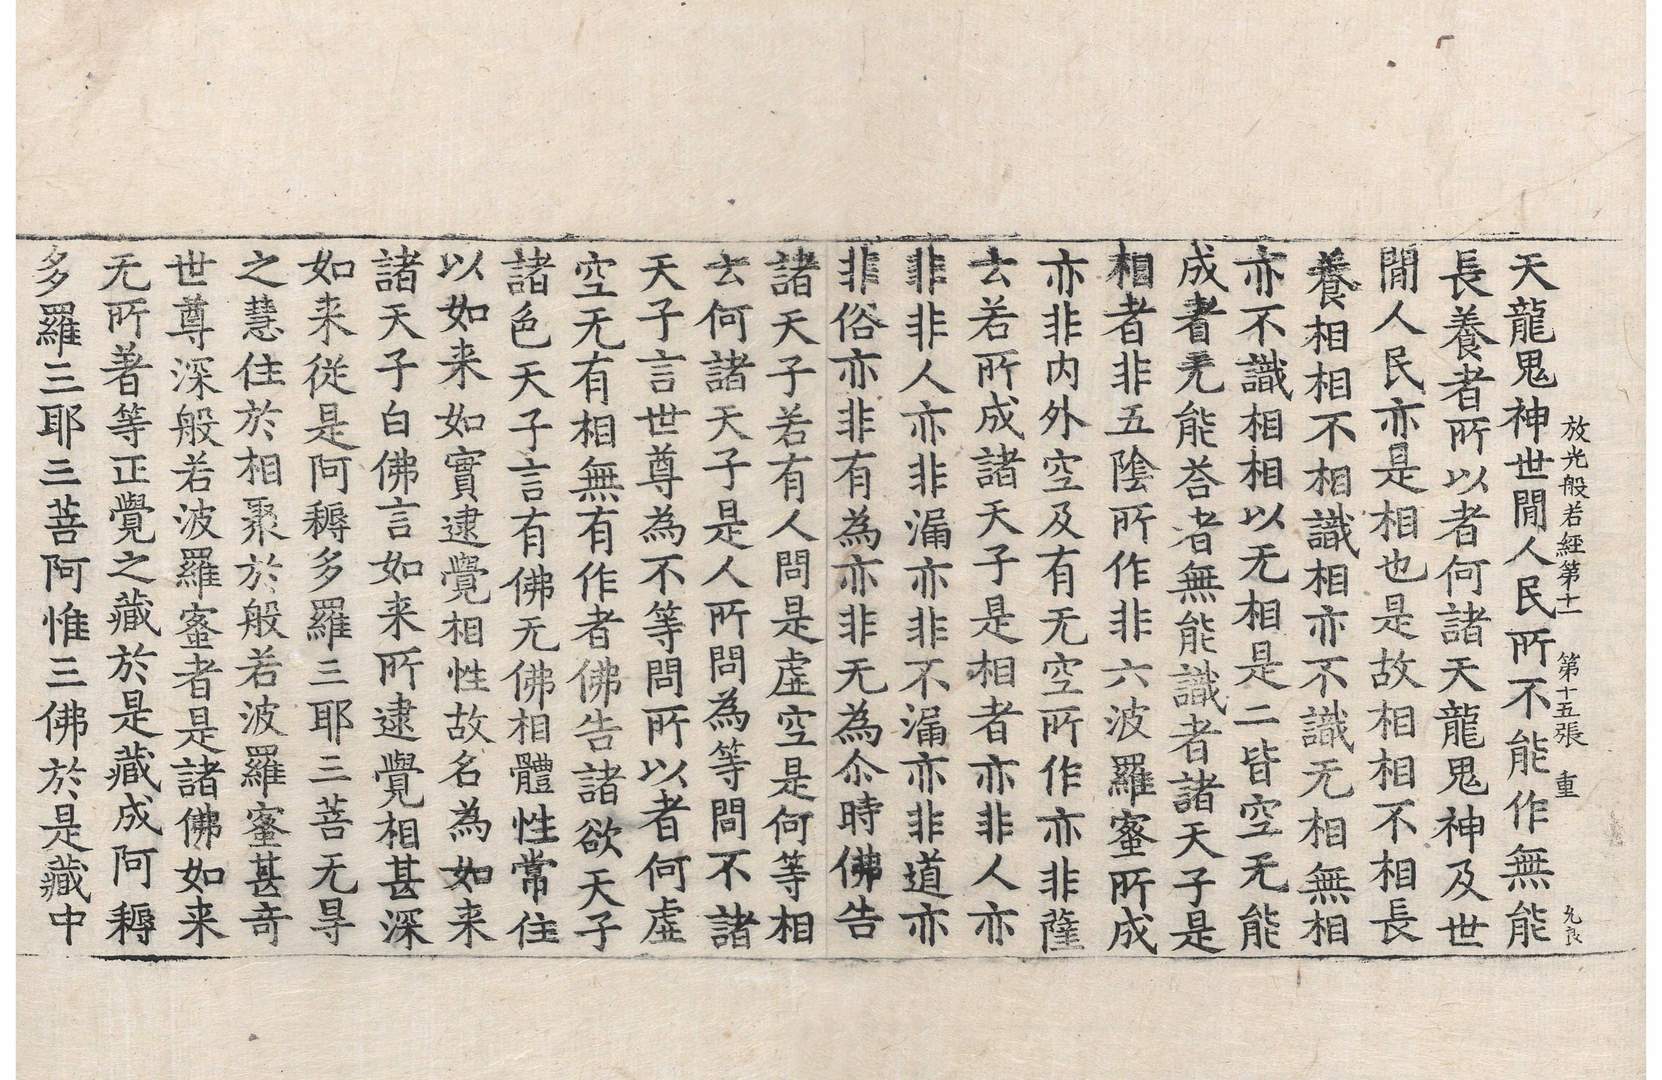 放光般若經第十一 第十五張 重 九良
天龍鬼神世閒人民所不能作無能
長養者所以者何諸天龍鬼神及世
閒人民亦是相也是故相相不相長
養相相不相識相亦不識无相無相
亦不識相相以无相是二皆空无能
成者无能荅者無能識者諸天子是
相者非五陰所作非六波羅蜜所成
亦非内外空及有无空所作亦非薩
云若所成諸天子是相者亦非人亦
非非人亦非漏亦非不漏亦非道亦
非俗亦非有為亦非无為尒時佛告
諸天子若有人問是虛空是何等相
云何諸天子是人所問為等問不諸
天子言世尊為不等問所以者何虛
空无有相無有作者佛告諸欲天子
諸色天子言有佛无佛相體性常住
以如来如實逮覺相性故名為如来
諸天子白佛言如来所逮覺相甚深
如来從是阿耨多羅三耶三菩无㝵
之慧住於相聚於般若波羅蜜甚奇
世尊深般若波羅蜜者是諸佛如来
无所著等正覺之藏於是藏成阿耨
多羅三耶三菩阿惟三佛於是藏中